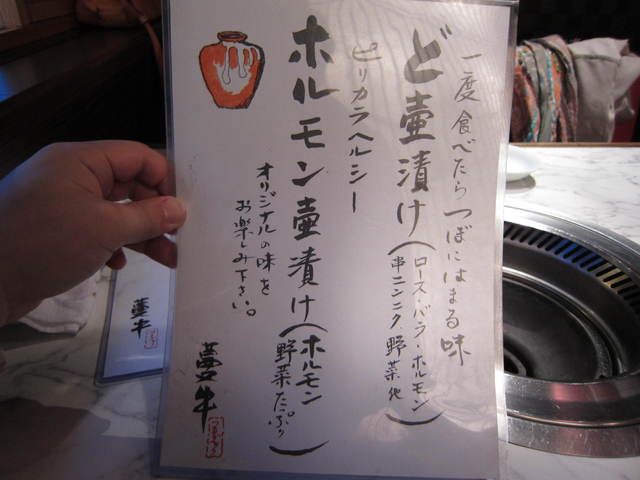 一度食べたらつぼにはまる味
ど壷漬け(ロース・バラ・ホルモン
串ニンニク、野菜他)
ピリカラヘルシー
ホルモン壷漬け(ホルモン
野菜たっぷり)
オリジナルの味を
お楽しみ下さい。
夢牛
夢牛